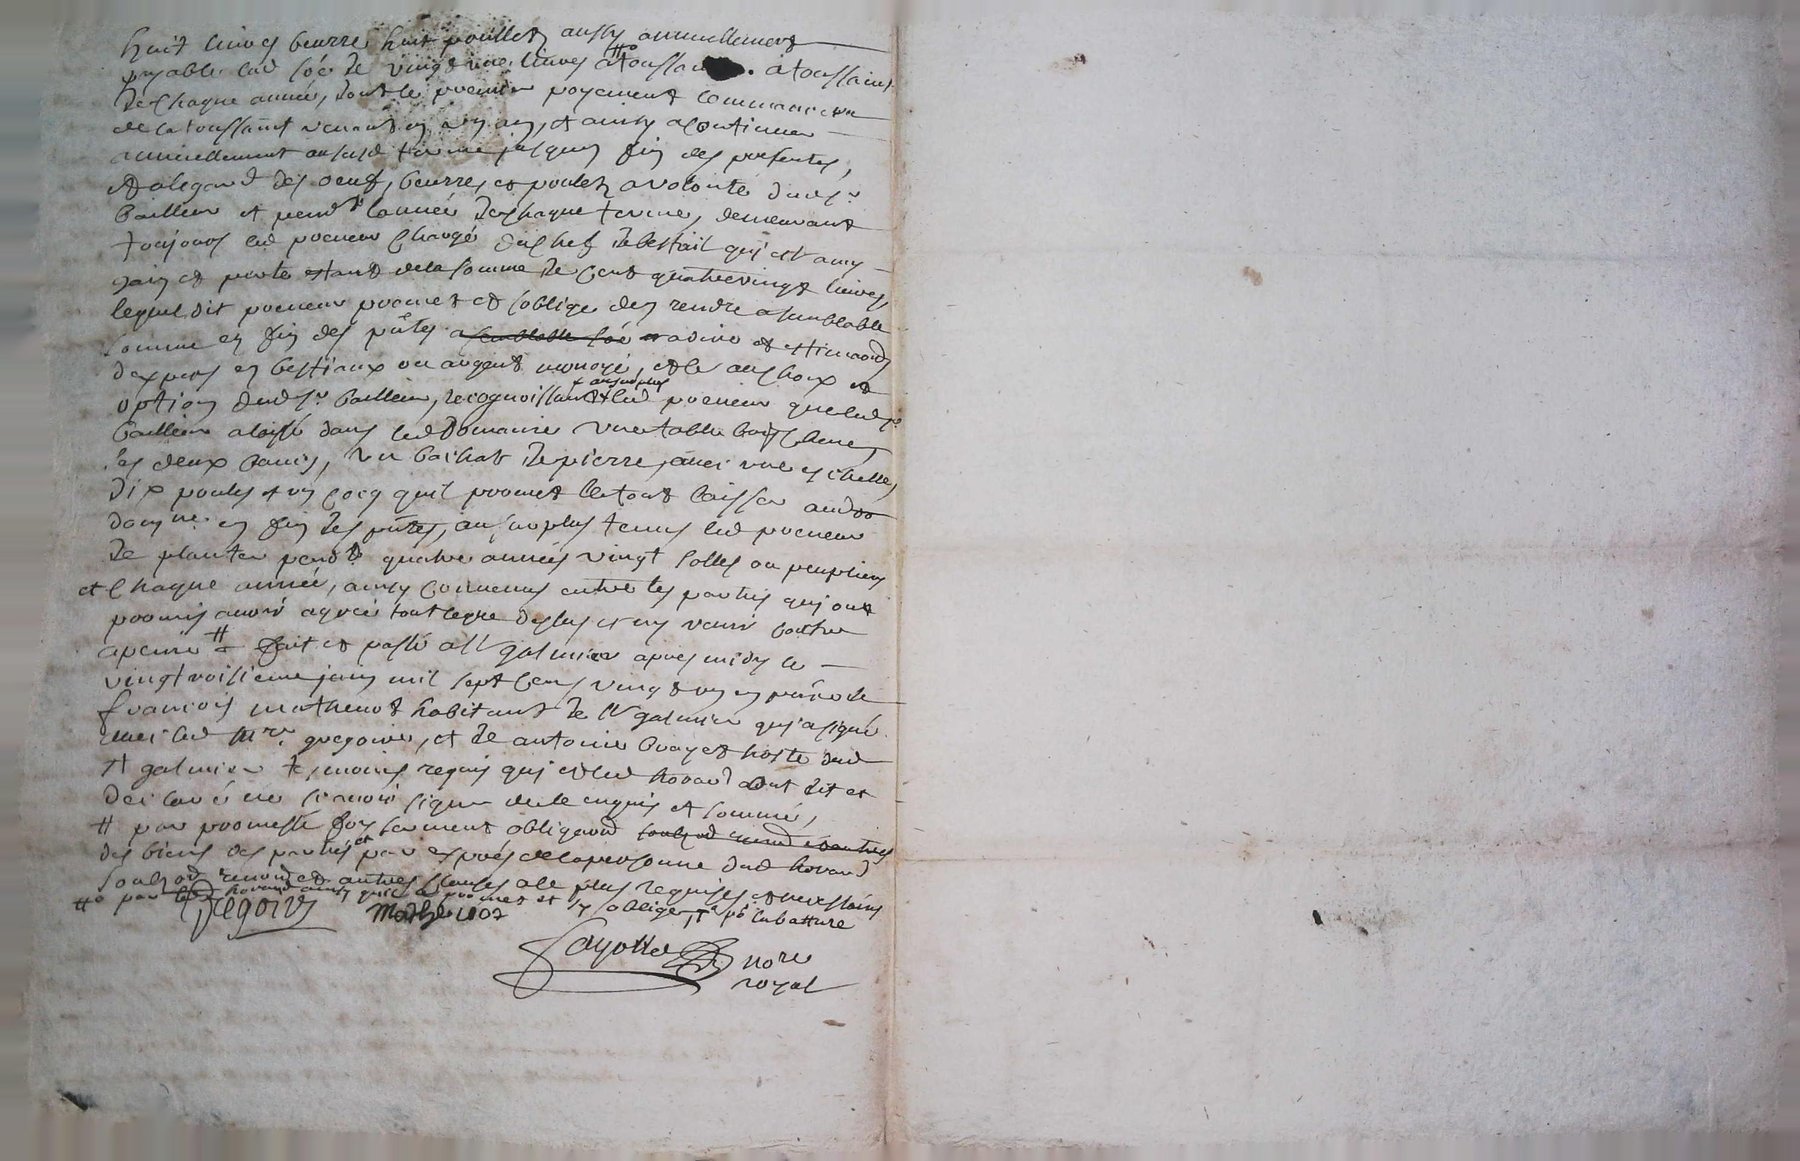 huit livres beurre huit poullets aussy annuellement
payable lad soe de vingt une livres #o a toussaint
de chaque année, dont le premier payement commancera
de la toussaint venant en un an, et ainsy a continuer
annuellement audit terme jusques fin des presentes,
et alegard des oeufs, beurre, et poulets a volonté dud sr
bailleur et pendt lannée de chaque terme, demeurant
toujours led preneur chargé du chef de bestail qui est a my
gain et perte estant de la somme de cent quatrevingt livres,
lequel dit preneur promet et soblige den rendre a semblable
somme en fin des pntes a semblable soe a dire et estimaon
dexpers en bestiaux ou argent monoyé, et le au choix et
option dud sr bailleur, recognoissant au surplus led preneur que led sr
bailleur a laissé dans led domaine une table bois chene,
ses deux bancs, un bachat de pierre, avec une eschelle,
dix poules et un cocq quil promet le tout laisser aud
domne en fin des pntes, au surplus tenu led preneur
de planter pendt quatre années vingt solles ou peupliers
et chaque année, ainsy convenu entre les parties qui ont
promis avoir agréé tout le que dessus et ny venir contre
a peine # fait et passé a St galmier apres midy le
vingt troisieme juin mil sept cens vingt un en pnce de
françois mathevot habitant de St galmier qui a signé
avec led Mre gregoire, et de antoine buayet hoste dud
St galmier temoins requis qui et led hovard ont dit et
declaré ne scavoir signer de ce enquis et sommé,
# par promesse foy serment obligaon soubzon renond et autres
des biens des parties et par exprés de la personne dud hovard
soubzon renond et autres clauses a ce plus requises et necessaires
#o par led hovard ainsy quil a promet et sy oblige,
Gregoire Mathevot
Fayolle nore
royal